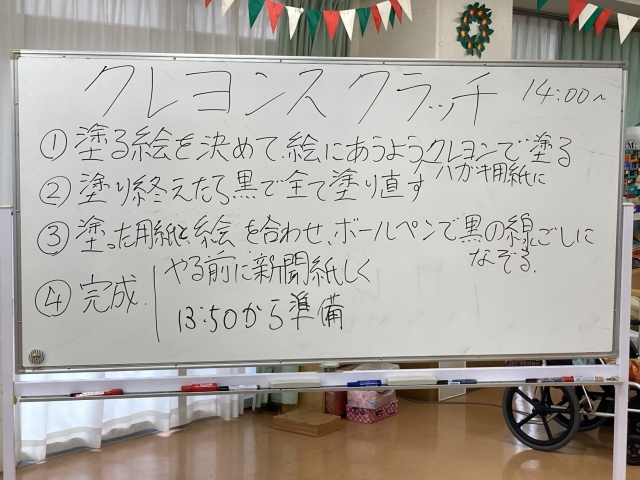 クレヨンスクラッチ 14:00~
① 塗る絵を決めて、絵にあうようクレヨンで塗る
ハガキ用紙に
② 塗り終えたら黒で全て塗り直す
③ 塗った用紙と絵を合わせ、ボールペンで黒の線ごしに
なぞる.
④ 完成.
やる前に新聞紙しく
13:50から準備